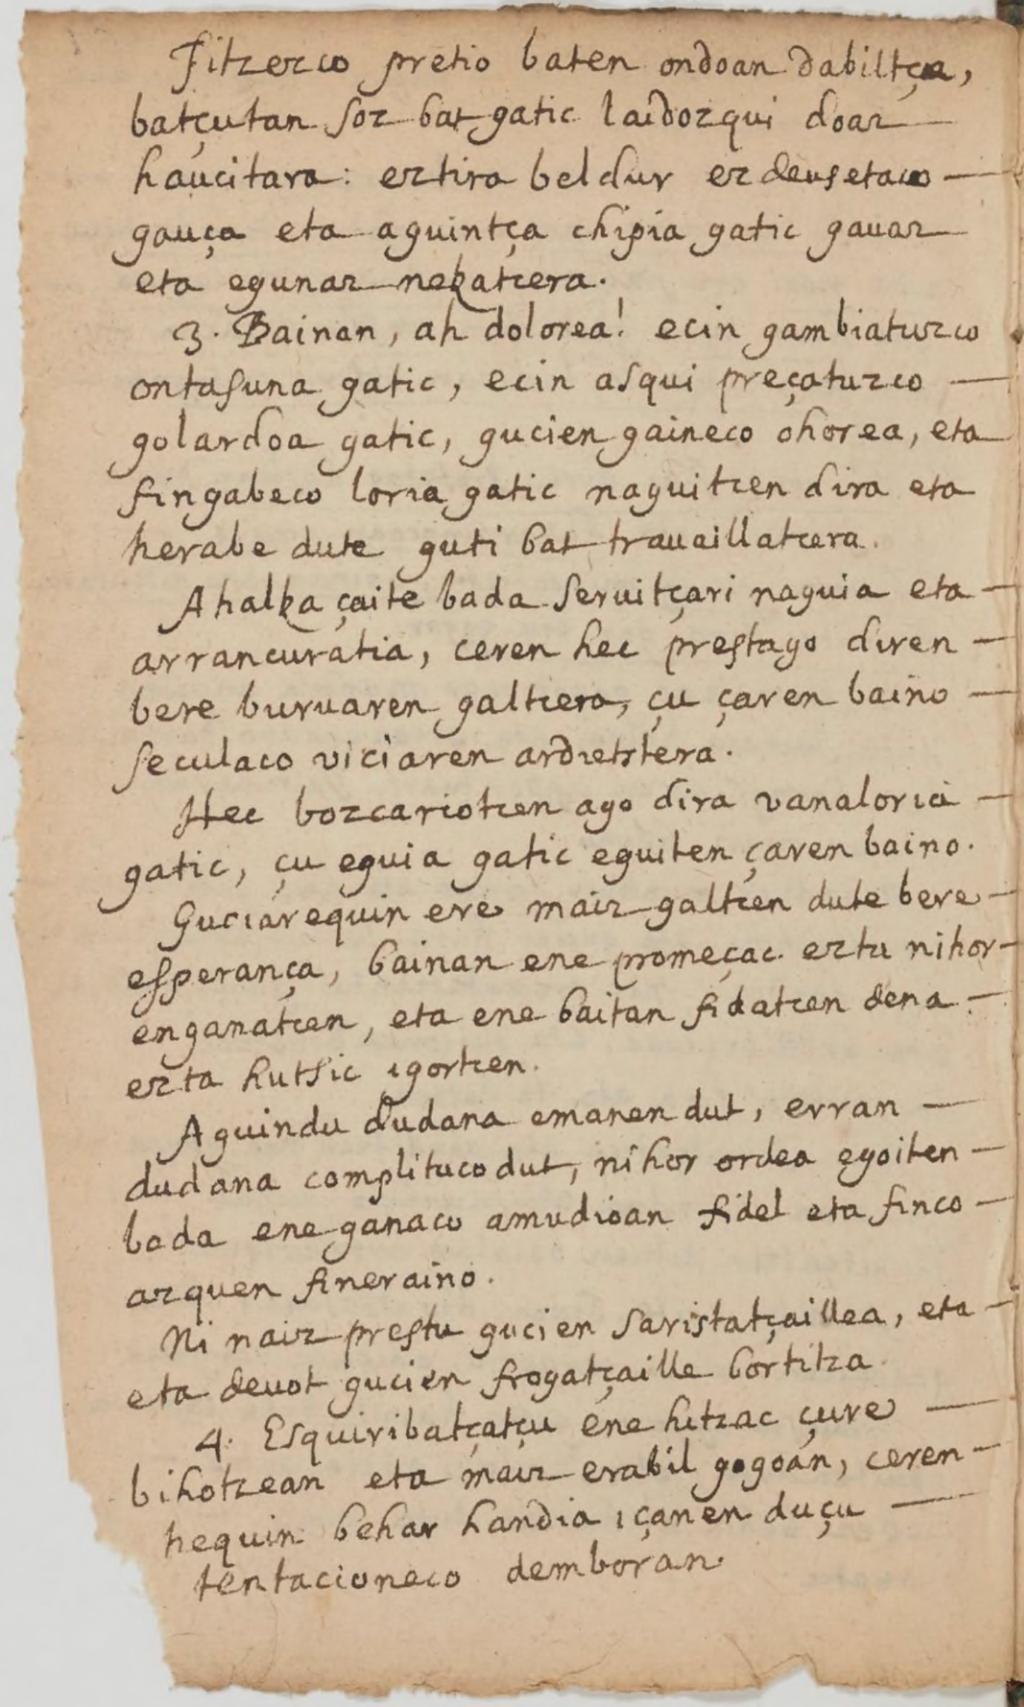 Fitzezco pretio baten ondoan dabiltça,
batçutan soz bat gatic laidozqui doaz
haucitara: eztira beldur ez deusetaco
gauça eta aguintça chipia gatic gauaz
eta egunaz nekatcera.
3. Bainan, ah dolorea! ecin gambiatuzco
ontasuna gatic, ecin asqui preçatuzco
golardoa gatic, gucien gaineco ohorea, eta
fingabeco loria gatic naguitcen dira eta
herabe dute guti bat trauaillatcera.
Ahalka çaite bada seruitçari naguia eta
arrancuratia, ceren hec prestago diren
bere buruaren galtcera, çu çaren baino
seculaco viciaren ardietstera.
Hec bozcariotcen ago dira vanaloria
gatic, çu eguia gatic eguiten çaren baino.
Guciarequin ere maiz galtcen dute bere
esperança, bainan ene promeçac eztu nihor
enganatcen, eta ene baitan fidatcen dena
ezta hutsic igortcen.
Aguindu dudana emanen dut, erran
dudana complituco dut, nihor ordea egoiten
bada ene ganaco amudioan fidel eta finco
azquen fineraino.
Ni naiz prestu gucien saristatçaillea, eta
eta deuot gucien frogatçaille bortitza.
4. Esquiribatçatçu ene hitzac çure
bihotzean eta maiz erabil gogoan, ceren
hequin behar handia içanen duçu
tentacioneco demboran.